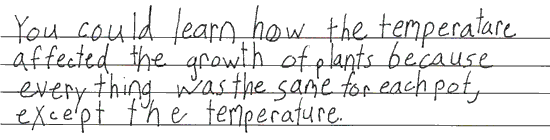 You could learn how the temperatare
affected the growth of plants because
every thing was the same for each pot,
except the temperature.